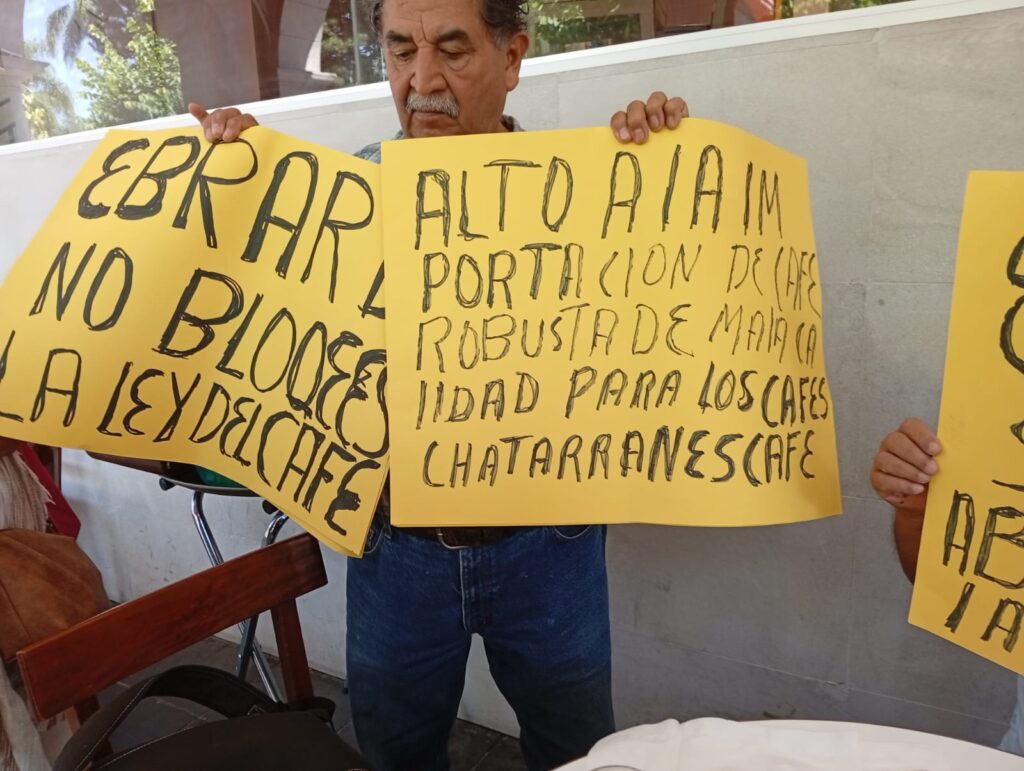 EBRARD
NO BLOQEES
LA LEY DEL CAFE
ALTO A lA IM
PORTACION DE CAFE
ROBUSTA DE MAlA CA
lIDAD PARA LOS CAFES
CHATARRA NESCAFE